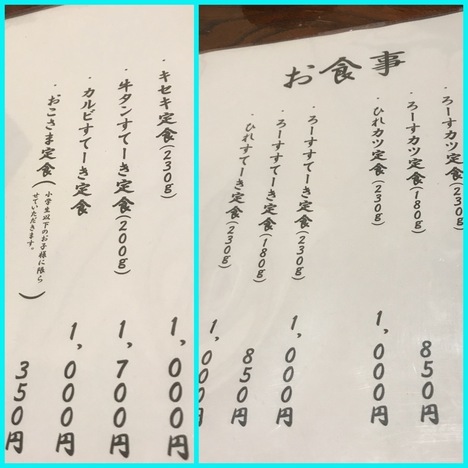 お食事
・ろーすカツ定食(230g)
・ろーすカツ定食(180g) 850円
・ひれカツ定食(230g) 1,000円
・ろーすすてーき定食(230g) 1,000円
・ろーすすてーき定食(180g) 850円
・ひれすてーき定食(230g) 1,000円
・キセキ定食(230g) 1,000円
・牛タンすてーき定食(200g) 1,700円
・カルビすてーき定食 1,000円
・おこさま定食(小学生以下のお子様に限ら
せていただきます。) 350円